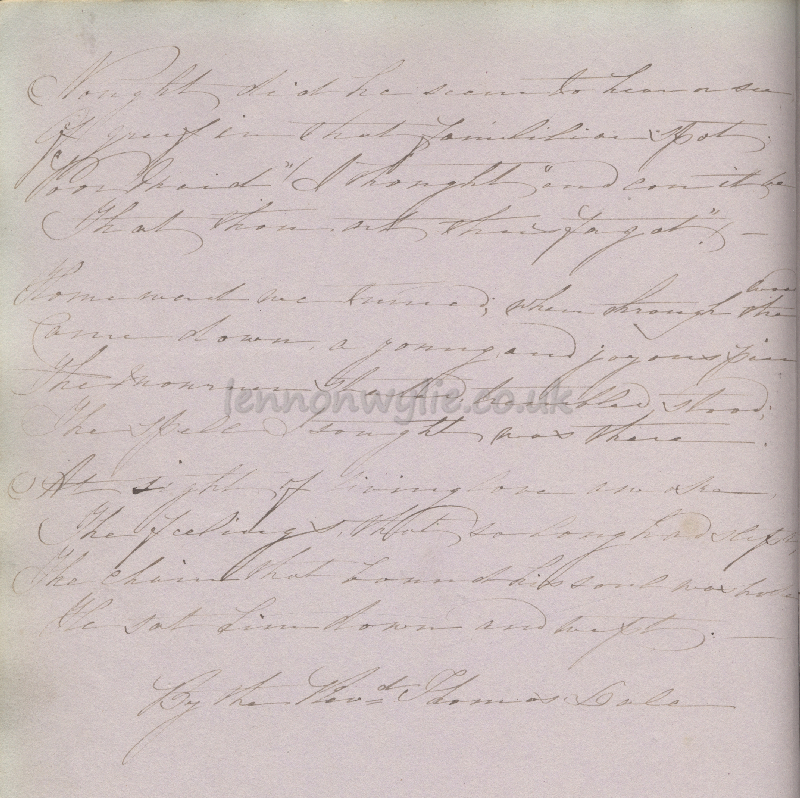 Nought did he seem to hear or see
Of grief in that familiar spot;
Poor Maid "I thought" and can it be
That thou art thus forgot"! —
Homeward we turned; when through the wood
Came down, a young and joyous pair
The mourner started, trembled, stood;
The spell I sought was there —.
At sight of living love awoke
The feelings, that so long had slept,
The chain that bound his soul was broke
He sat him down and wept. —
By the Revd. Thomas Dale
lennonwylie.co.uk